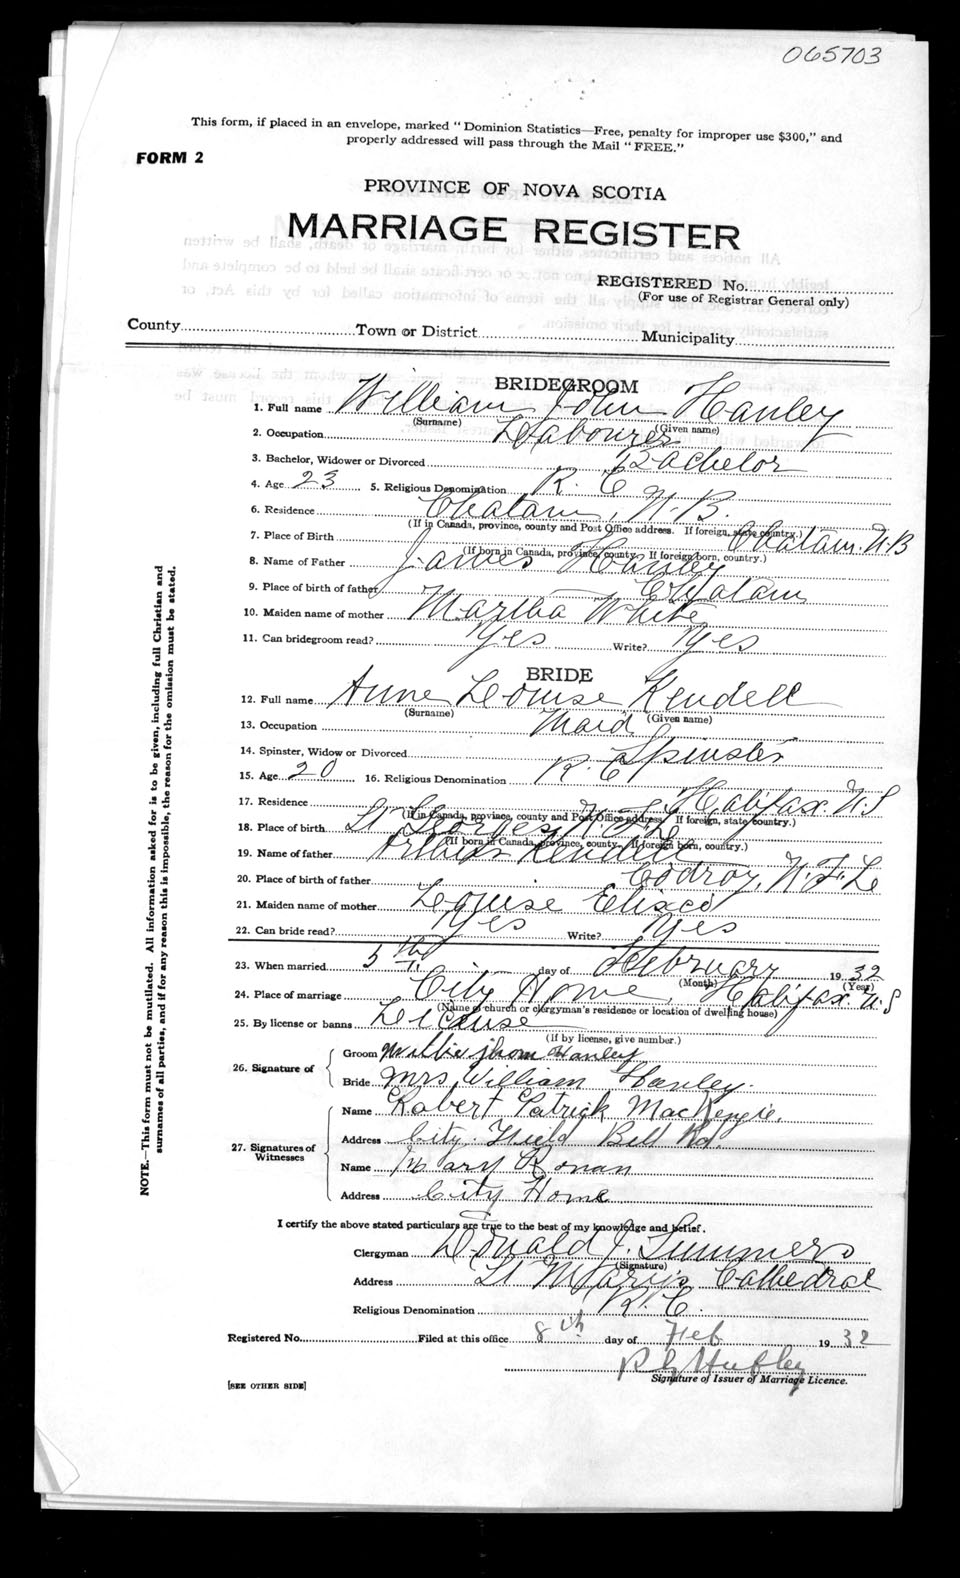 065703
This form, if placed in an envelope, marked "Dominion Statistics—Free, penalty for improper use $300," and
properly addressed will pass through the Mail "FREE."
FORM 2
PROVINCE OF NOVA SCOTIA
MARRIAGE REGISTER
REGISTERED No.
(For use of Registrar General only)
County Town or District Municipality
BRIDEGROOM
1. Full name William John Hanley
(Surname) (Given name)
2. Occupation Labourer
3. Bachelor, Widower or Divorced Bachelor
4. Age 23 5. Religious Denomination R. C
6. Residence Chatam, N.B.
(If in Canada, province, county and Post Office address. If foreign, state country.)
7. Place of Birth Chatam. N.B
(If born in Canada, province, county. If foreign born, country.)
8. Name of Father James Hanley
9. Place of birth of father Chatam
10. Maiden name of mother Martha White
11. Can bridegroom read? Yes Write? Yes
BRIDE
12. Full name Anne Louise Kendell
(Surname) (Given name)
13. Occupation Maid
14. Spinster, Widow or Divorced Spinster
15. Age 20 16. Religious Denomination R. C
17. Residence Halifax. N.S
(If in Canada, province, county and Post Office address. If foreign, state country.)
18. Place of birth St Georges N.F.L
(If born in Canada, province, county. If foreign born, country.)
19. Name of father Arthur Kendell
20. Place of birth of father Codroy, N.F.L
21. Maiden name of mother Louise
22. Can bride read? Yes Write? Yes
23. When married 5th day of February 1932
(Month) (Year)
24. Place of marriage City Home, Halifax. N.S
(Name of church or clergyman's residence or location of dwelling house)
25. By license or banns License
(If by license, give number.)
26. Signature of
Groom Willie jhom Hanley
Bride Mrs William Hanley.
27. Signatures of Witnesses
Name Robert Patrick MacKenzie.
Address City. Field Bell Rd.
Name Mary Ronan
Address City Home
I certify the above stated particulars are true to the best of my knowledge and belief.
Clergyman Donald J. Summers
(Signature)
Address St Marys Cathedral
Religious Denomination R. C.
Registered No. Filed at this office 8th day of Feb 1932
Signature of Issuer of Marriage Licence.
[SEE OTHER SIDE]
NOTE.—This form must not be mutilated. All information asked for is to be given, including full Christian and
surnames of all parties, and if for any reason this is impossible, the reason for the omission must be stated.